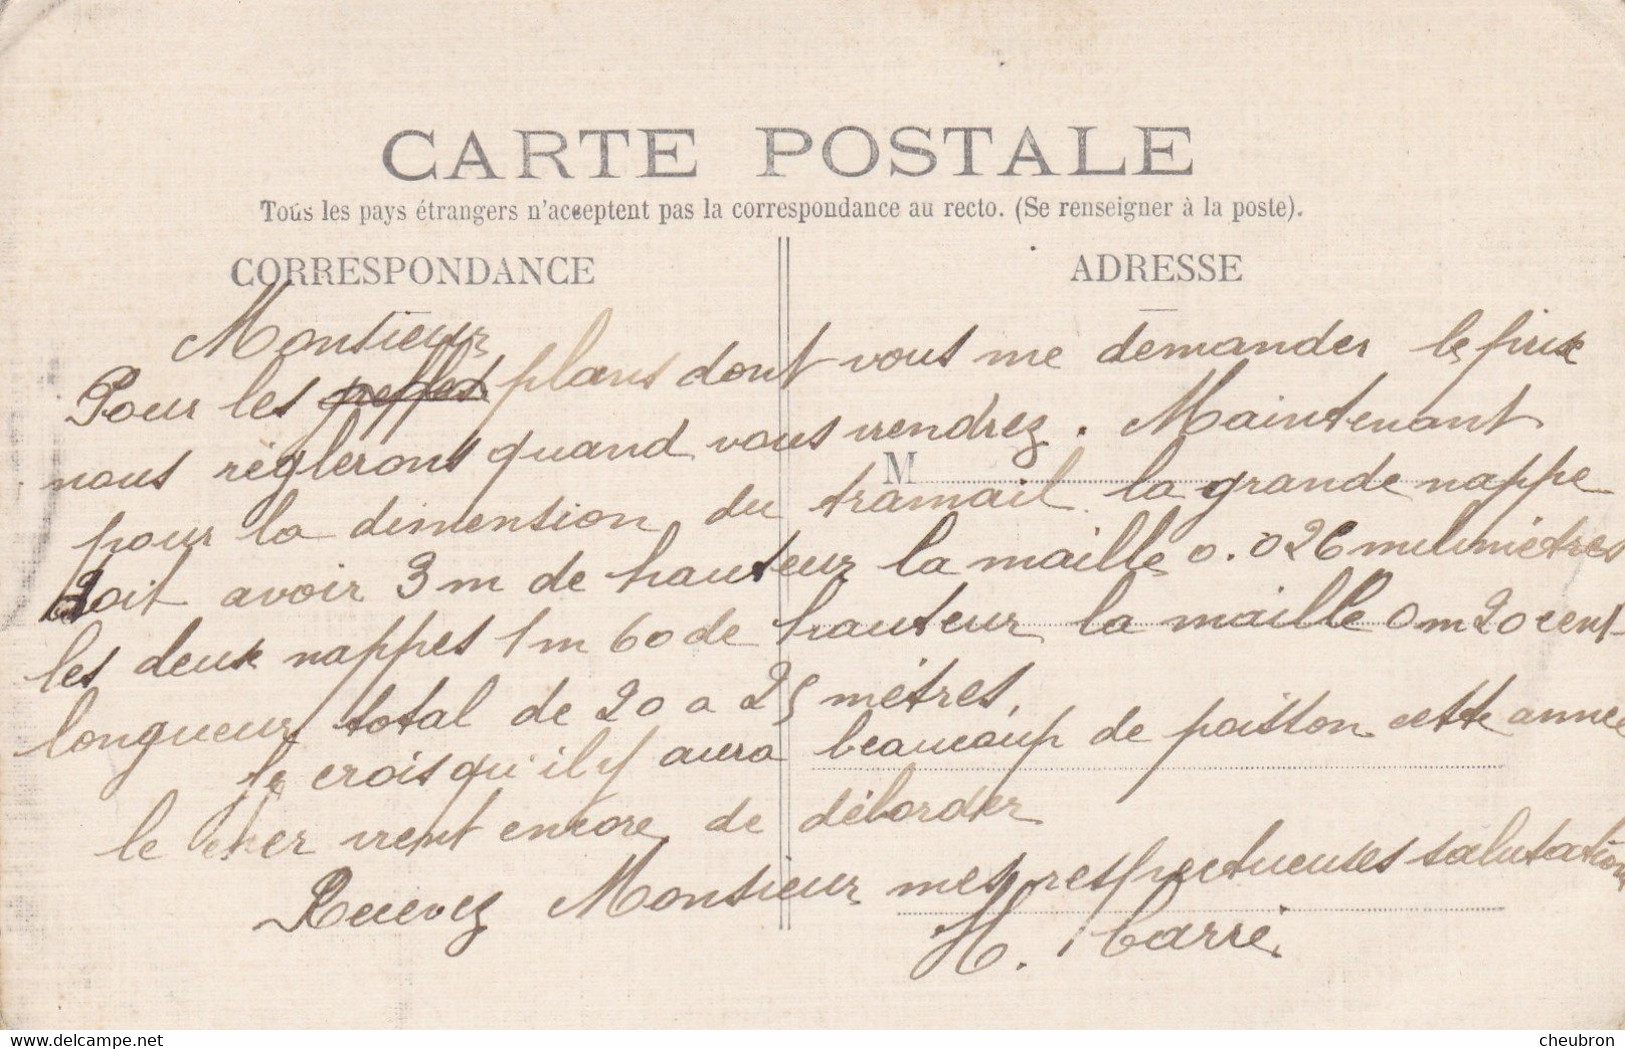 CARTE POSTALE
Tous les pays étrangers n'acceptent pas la correspondance au recto. (Se renseigner à la poste).
CORRESPONDANCE
ADRESSE
Monsieur
Pour les plans dont vous me demander le prix
nous réglerons quand vous viendrez. Maintenant
M
pour la dimension du tramail la grande nappe
doit avoir 3 m de hauteur la maille 0.026 milimètres
les deux nappes 1 m 60 de hauteur la maille 0 m 20 cent
longueur total de 20 a 25 mètres.
Je crois qu'il y aura beaucoup de poisson cette année
le cher vient encore de déborder
Recevez Monsieur mes respectueuses salutations
H. Carré
delcampe.net
cheubron